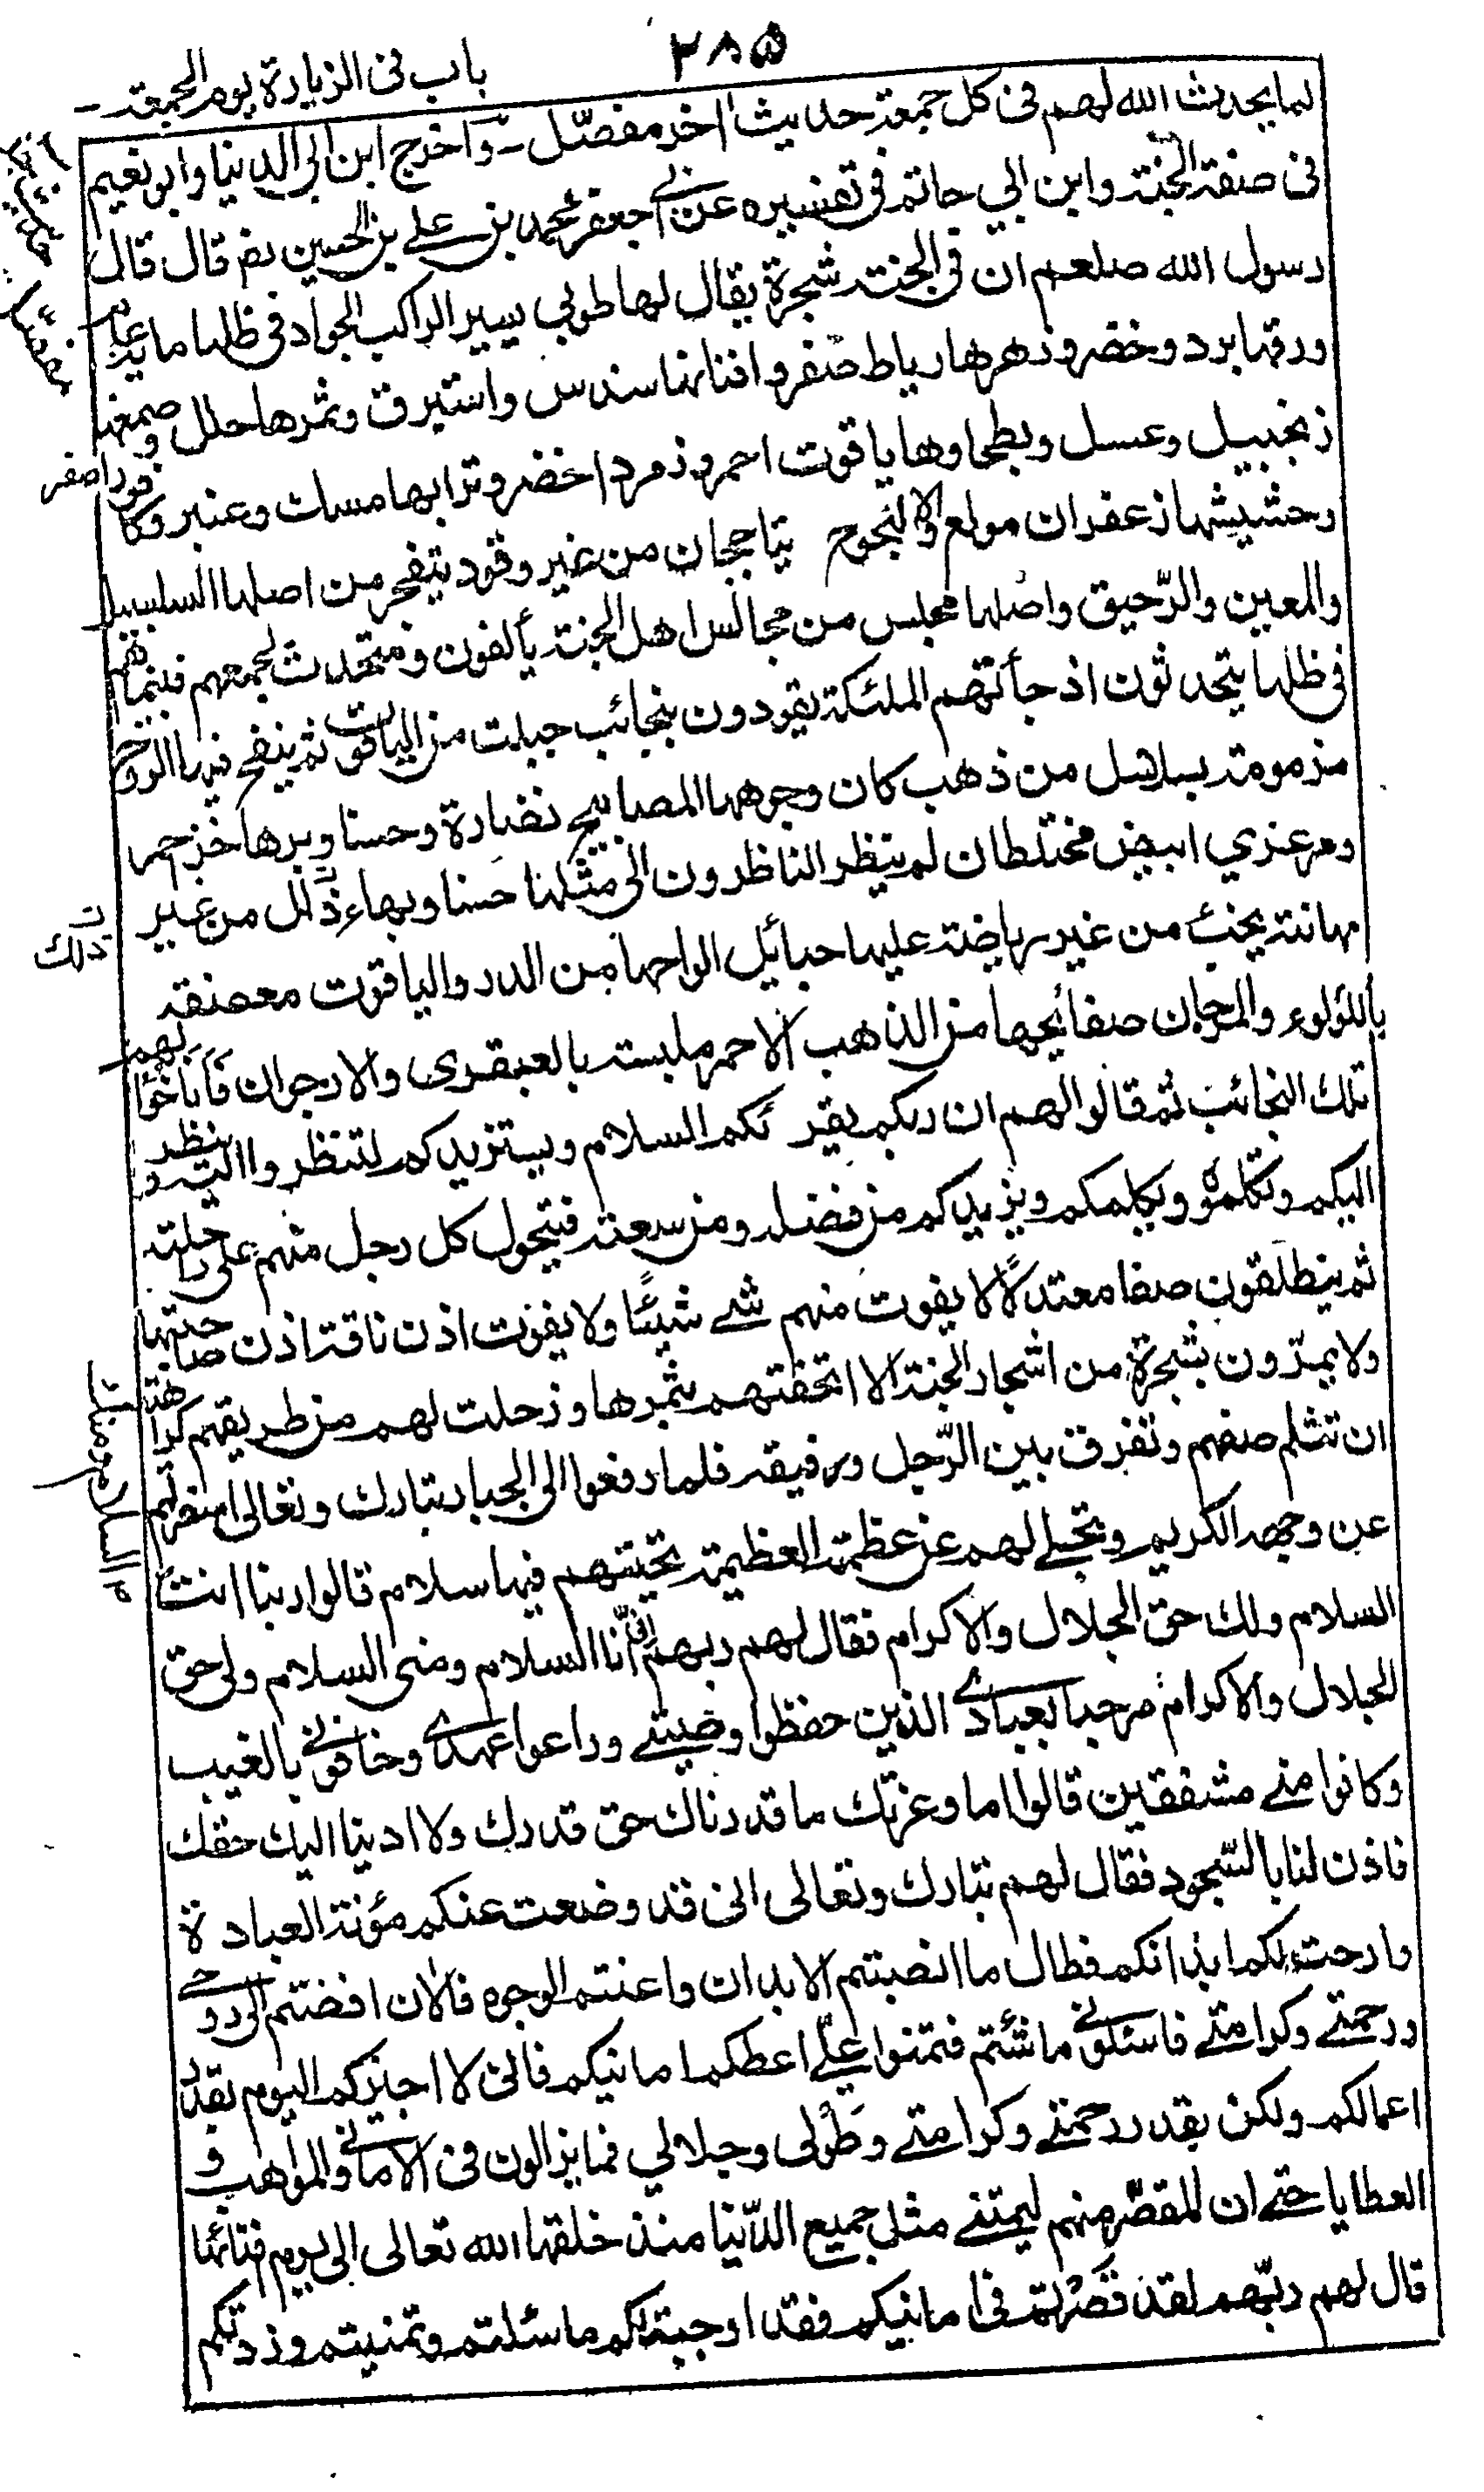 ٢٨٥
باب فى الزيارة يوم الجمعة
لما يحدث الله لهم فى كل جمعة حديث اخر مفصّل ـ واخرج ابن ابى الدنيا وابو نعيم
فى صفة الجنة وابن ابي حاتم فى تفسيره عن ابى جعفر محمد بن على بن الحسين رض قال قال
رسول الله صلعم ان فى الجنة شجرة يقال لها طوبى يسير الراكب الجواد فى ظلها مائة عام
ورقها برد وخضر وزهرها رياط صفر وافنانها سندس واستبرق وثمرها حلل وصمغها
زنجبيل وعسل وبطحاوها ياقوت احمر وزمرد اخضر وترابها مسك وعنبر وكافور اصفر
وحشيشها زعفران مولع والالنجوج يتاججان من غير وقود يتفجر من اصلها السلسبيل
والمعين والرّحيق واصلها مجلس من مجالس اهل الجنة يألفون ومتحدث لجمعهم فبينما هم
فى ظلها يتحدثون اذ جأتهم الملئكة يقودون بنجائب جبلت من الياقوت ثم ينفخ فيها الروح
مزمومة بسلاسل من ذهب كان وجوهها المصابيح نضارة وحسنا وبرها خز احمر
ومرعزي ابيض مختلطان لم ينظر الناظرون الى مثلها حسنا وبهاء ذلل من غير
ذلك
مهانة يخب من غير رياضة عليها حبائل الواحها من الدر والياقوت معصنقة
باللؤلوء والمرجان صفائحها من الذهب الاحمر ملبسة بالعبقرى والارجوان فأناخوا بهم
تلك النجائب ثم قالوا لهم ان ربكم يقرئكم السلام ويستزيدكم لتنظروا اليه وينظر
اليكم وتكلموه ويكلمكم ويزيدكم من فضله ومن سعته فيتحول كل رجل منهم على راحلته
ثم ينطلقون صفا معتدلًا لا يفوت منهم شے شيئًا ولا يفوت اذن ناقة اذن صاحبتها
ولا يمرّون بشجرة من اشجار الجنة الا اتحفتهم بثمرها وزحلت لهم من طريقهم كراهة
ان تثلم صفهم وتفرق بين الرّجل ورفيقه فلما دفعوا الى الجبار تبارك وتعالى اسفر لهم
عن وجهه الكريم وتجلے لهم عن عظمته العظيمة تحيتهم فيها سلام قالوا ربنا انت
السلام ولك حق الجلال والاكرام فقال لهم ربهم انى انا السلام ومنى السلام ولى حق
الجلال والاكرام مرحبا بعبادے الذين حفظوا وصيتے وراعوا عهدے وخافونے بالغيب
وكانوا منے مشفقين قالوا اما وعزتك ما قدرناك حق قدرك ولا ادينا اليك حقك
فاذن لنا بالسّجود فقال لهم تبارك وتعالى انى قد وضعت عنكم مؤنة العبادة
وارحت لكم ابدانكم فطال ما انصبتم الابدان واعنتم الوجوه فالان افضتم الى روحے
ورحمتے وكرامتے فاسئلونے ما شئتم فتمنوا علے اعطكم امانيكم فانى لا اجيزكم اليوم بقدر
اعمالكم ولكن بقدر رحمتے وكرامتے وطولى وجلالي فما يزالون فى الامانے والمواهب و
العطايا حتے ان المقصّر منهم ليتمنے مثل جميع الدّنيا منذ خلقها الله تعالى الى يوم فنائها
قال لهم ربّهم لقد قصرتم فى امانيكم فقد اوجبت لكم ما سئلتم وتمنيتم وزدتكم